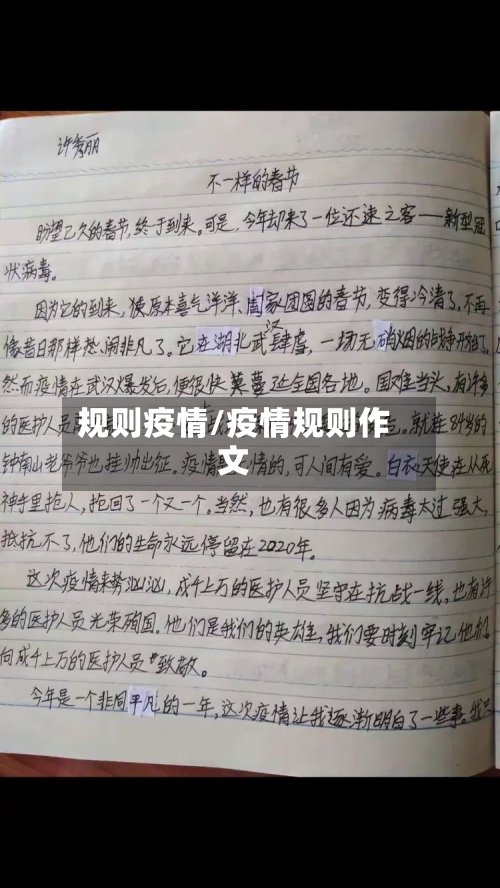 许秀丽
不一样的春节
盼望已久的春节,终于到来。可是,今年却来了一位不速之客——新型冠
状病毒。
因为它的到来,使原本喜气洋洋、阖家团圆的春节,变得冷清了,不再
像昔日那样热闹非凡了。它在湖北武汉肆虐,一场无硝烟的战争开始了。
然而疫情在武汉爆发后,便很快蔓延全国各地。国难当头,有许多
的医护人员 就连84岁的
规则疫情/疫情规则作
文
钟南山老爷爷也挂帅出征。疫情是无情的,可人间有爱。白衣天使在从死
神手里抢人,抢回了一个又一个。当然,也有很多人因为病毒太过强大,
抵抗不了,他们的生命永远停留在2020年。
这次疫情来势汹汹,成千上万的医护人员坚守在抗战一线,也有许
多的医护人员光荣殉国。他们是我们的英雄,我们要时刻牢记他们,
向成千上万的医护人员"致敬。
今年是一个非同平凡的一年,这次疫情让我逐渐明白了一些事。我